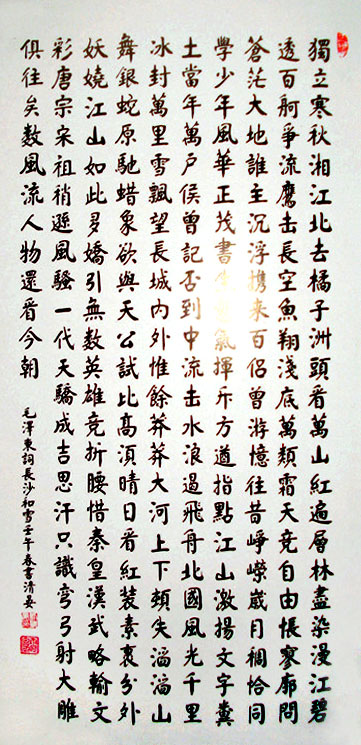 獨立寒秋湘江北去橘子洲頭看萬山紅遍層林盡染漫江碧
透百舸爭流鷹击長空魚翔淺底萬類霜天竞自由悵寥廓問
蒼茫大地誰主沉浮携来百侣曾游憶往昔峥嶸崴月稠恰同
學少年風華正茂書生意氣揮斥方遒指點江山激揚文字糞
土當年萬户侯曾記否到中流击水浪遏飛舟北國風光千里
冰封萬里雪飄望長城内外惟餘莽莽大河上下頓失滔滔山
舞銀蛇原馳蜡象欲與天公試比高湏晴日看紅装素裹分外
妖嬈江山如此多嬌引無数英雄竞折腰惜秦皇漢武略輸文
彩唐宗宋祖稍遜風騷一代天驕成吉思汗只識彎弓射大雕
俱往矣数風流人物還看今朝
毛澤東詞長沙和雪壬午春書清